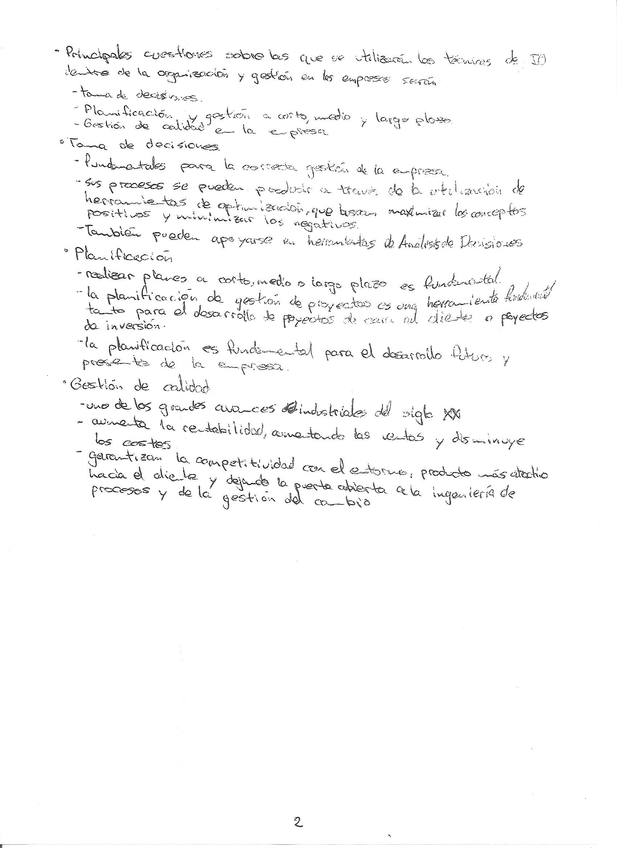 - Principales cuestiones sobre las que se utilizarán las técnicas de IO
dentro de la organización y gestión en las empresas serán
- toma de decisiones.
- Planificación y gestión a corto, medio y largo plazo
- Gestión de calidad en la empresa
° Toma de decisiones
- fundamentales para la correcta gestión de la empresa.
- sus procesos se pueden producir a traves de la utilización de
herramientas de optimización, que buscan maximizar los conceptos
positivos y minimizar los negativos.
- También pueden apoyarse en herramientas de Analisis de Decisiones
° Planificación
- realizar planes a corto, medio o largo plazo es fundamental.
- la planificación de gestión de proyectos es una herramienta fundamental
tanto para el desarrollo de proyectos de cara al cliente o proyectos
de inversión.
- la planificación es fundamental para el desarrollo futuro y
presente de la empresa.
° Gestión de calidad
- uno de los grandes avances industriales del siglo XX
- aumenta la rentabilidad, aumentando las ventas y disminuye
los costes
- garantizan la competitividad con el entorno, producto más
hacia el cliente y dejando la puerta abierta a la ingeniería de
procesos y de la gestión del cambio
2